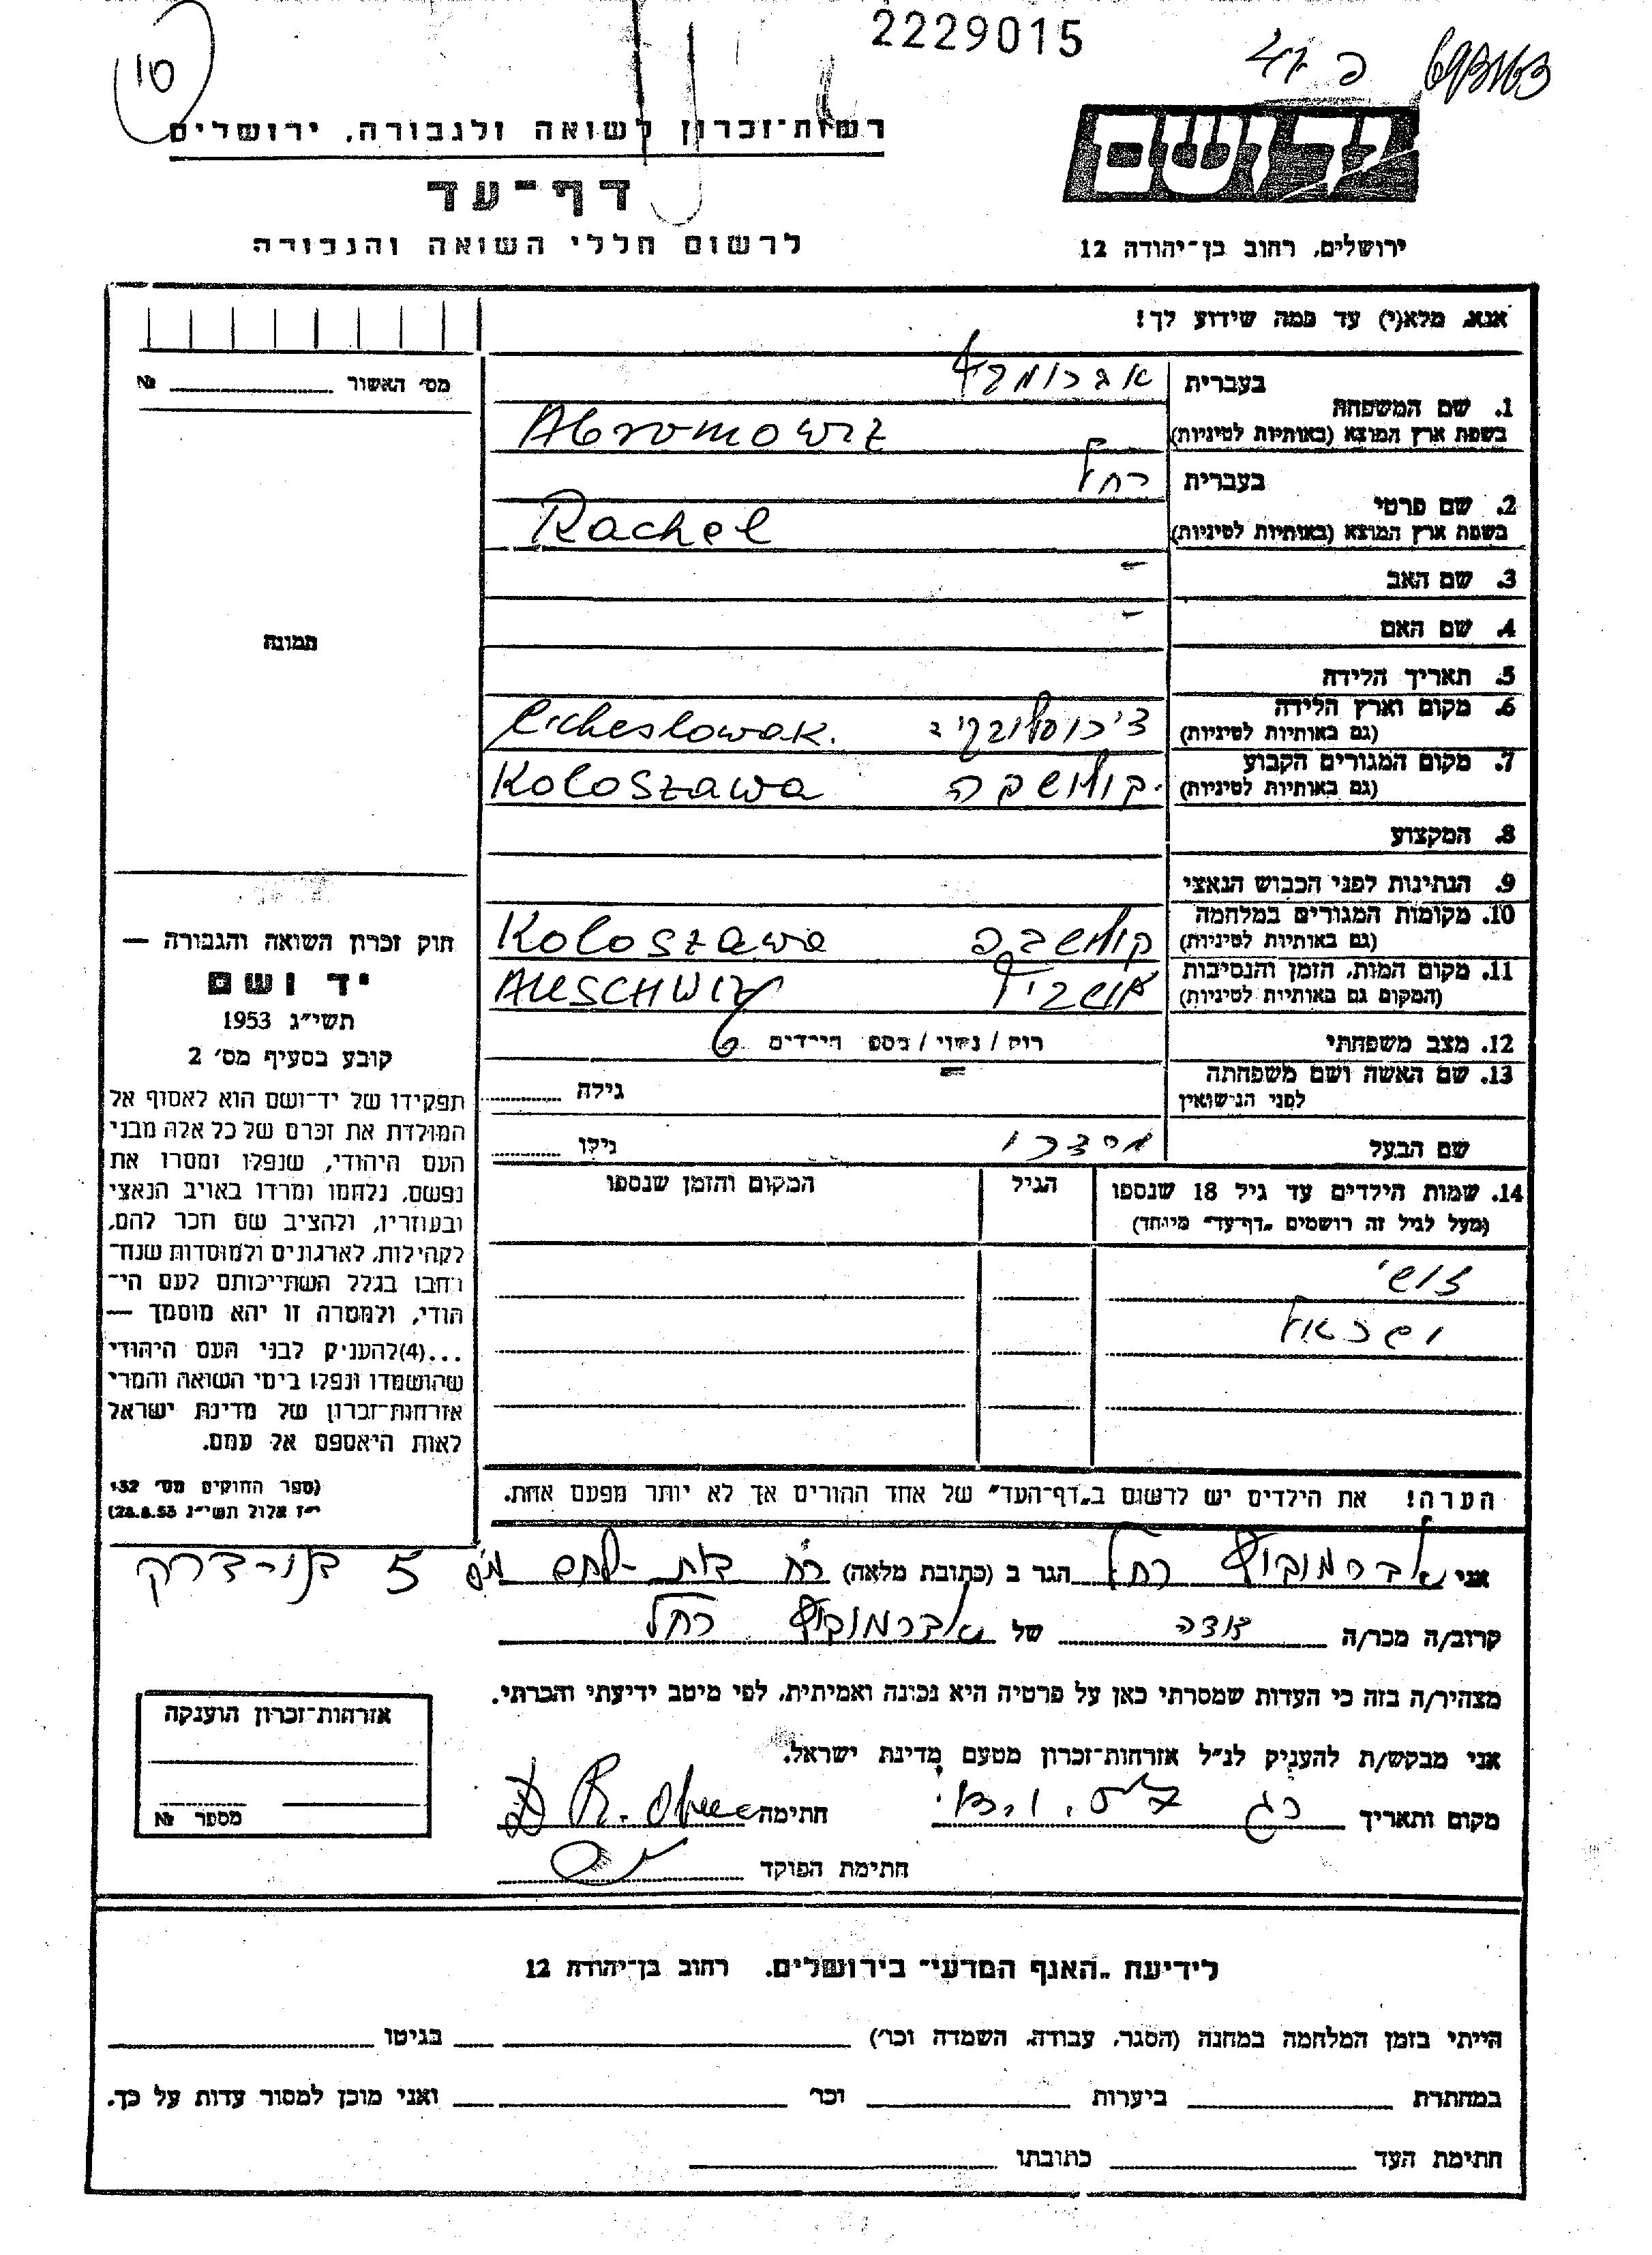 2229015
10
רשות־זכרון לשואה ולגבורה, ירושלים
יד ושם
דף־עד
לרשום חללי השואה והגבורה
ירושלים, רחוב בן־יהודה 12
אנא, מלא(י) עד כמה שידוע לך!
מס׳ האשור № 
1. שם המשפחה
בעברית אברומוביץ
בשפת ארץ המוצא (באותיות לטיניות) Abromowiz
2. שם פרטי
בעברית רחל
בשפת ארץ המוצא (באותיות לטיניות) Rachel
3. שם האב -
4. שם האם -
תמונה
5. תאריך הלידה
6. מקום וארץ הלידה
(גם באותיות לטיניות) צ׳כוסלובקיה
7. מקום המגורים הקבוע
(גם באותיות לטיניות) קולושבה Koloszawa
8. המקצוע
9. הנתינות לפני הכבוש הנאצי
10. מקומות המגורים במלחמה
(גם באותיות לטיניות) קולושבה Koloszawa
11. מקום המות, הזמן והנסיבות
(המקום גם באותיות לטיניות) אושביץ AUSCHWIZ
12. מצב משפחתי רוק / נשוי / מספר הילדים 6
13. שם האשה ושם משפחתה
לפני הנישואין - גילה
שם הבעל גילו
14. שמות הילדים עד גיל 18 שנספו
(מעל לגיל זה רושמים „דף־עד״ מיוחד)
הגיל
המקום והזמן שנספו
הערה! את הילדים יש לרשום ב„דף־העד״ של אחד ההורים אך לא יותר מפעם אחת.
חוק זכרון השואה והגבורה —
יד ושם
תשי״ג 1953
קובע בסעיף מס׳ 2
תפקידו של יד־ושם הוא לאסוף אל
המולדת את זכרם של כל אלה מבני
העם היהודי, שנפלו ומסרו את
נפשם, נלחמו ומרדו באויב הנאצי
ובעוזריו, ולהציב שם וזכר להם,
לקהילות, לארגונים ולמוסדות שנח־
רבו בגלל השתייכותם לעם הי־
הודי, ולמטרה זו יהא מוסמך —
...(4)להעניק לבני העם היהודי
שהושמדו ונפלו בימי השואה והמרי
אזרחות־זכרון של מדינת ישראל
לאות היאספם אל עמם.
(ספר החוקים מס׳ 132
י״ז אלול תשי״ג 28.8.53)
אני אברמוביץ רחל הגר ב (כתובת מלאה) רח בית לחם מס 5
קרוב/ה מכר/ה של אברמוביץ רחל
מצהיר/ה בזה כי העדות שמסרתי כאן על פרטיה היא נכונה ואמיתית, לפי מיטב ידיעתי והכרתי.
אני מבקש/ת להעניק לנ״ל אזרחות־זכרון מטעם מדינת ישראל.
מקום ותאריך חתימה
חתימת הפוקד
אזרחות־זכרון הוענקה
מספר №
לידיעת „האגף המדעי״ בירושלים, רחוב בן־יהודה 12
הייתי בזמן המלחמה במחנה (הסגר, עבודה, השמדה וכר׳) בגיטו
במחתרת ביערות וכר׳ ואני מוכן למסור עדות על כך.
חתימת העד כתובתו